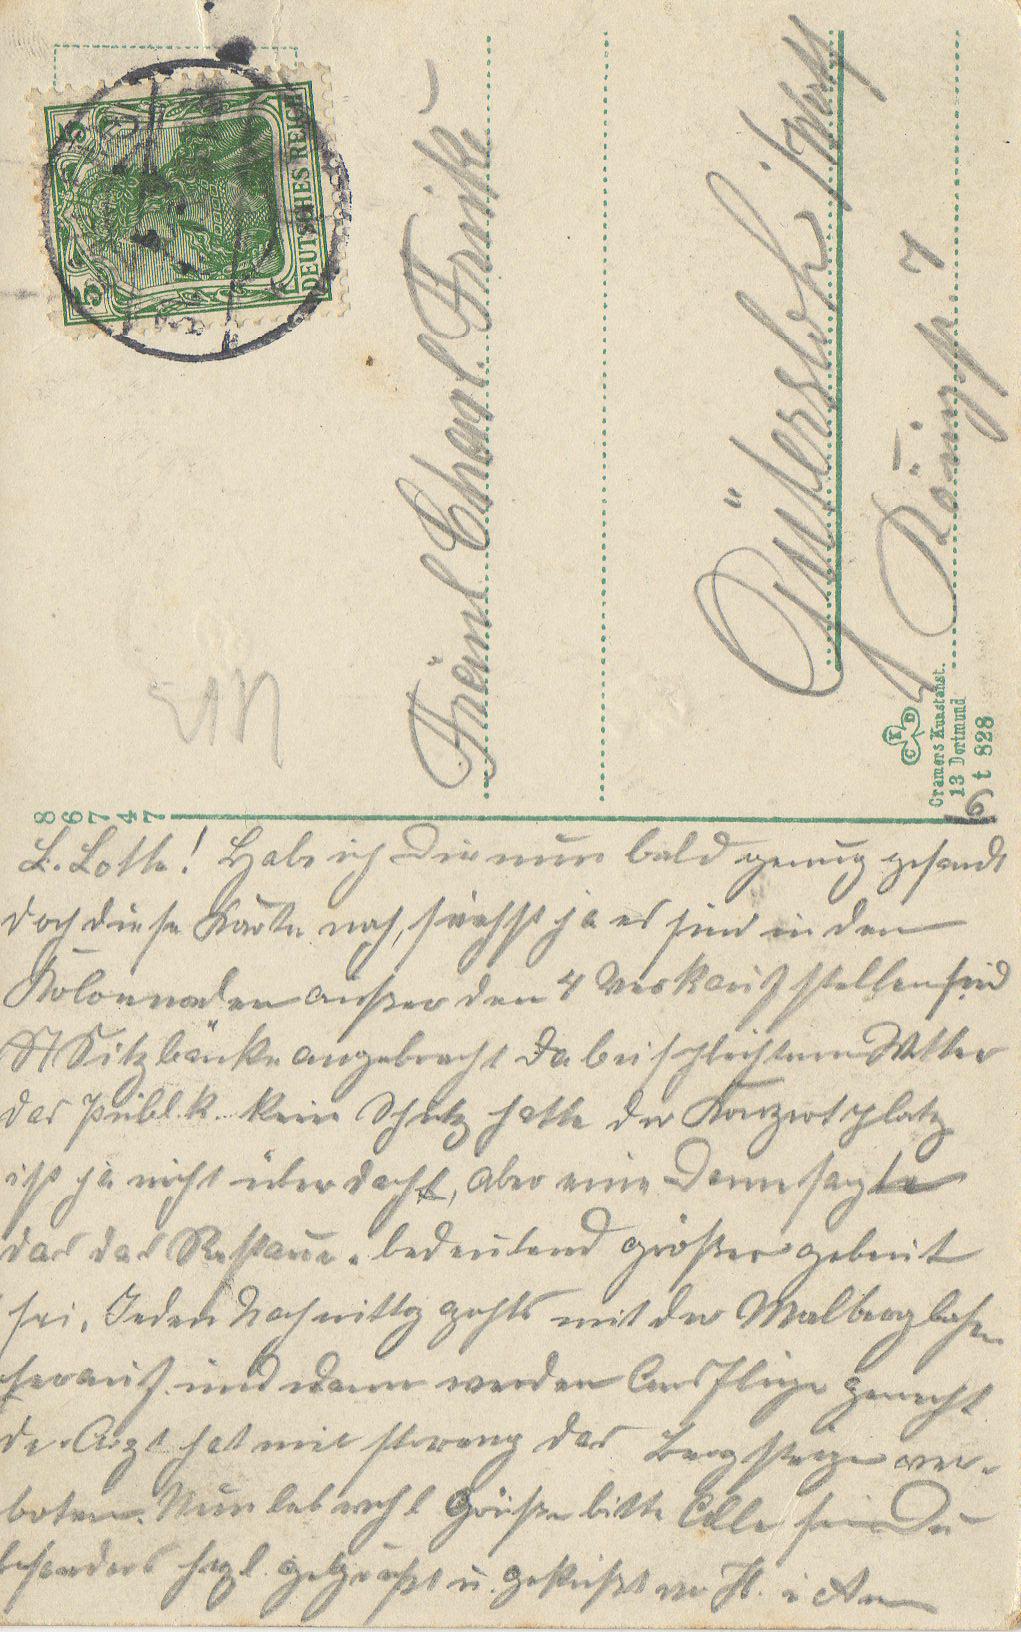 DEUTSCHES REICH
5
5
Fräul Charl. Frieke
Gütersloh i/Westf
Königst. 7
CKD
Cramers Kunstanst.
13 Dortmund
t 828
86747
L. Lotte! Habe ich Dir nun bald genug gesandt
doch diese Karte noch, siehst ja es sind in den
Kolonnaden außer den 4 Verkaufsstellen sind
Sitzbänke angebracht Da bei schlechtem Wetter
das Publik. kein Schutz hatte der Konzertplatz
ist ja nicht überdacht, aber eine Dame sagte
das das Restaur. bedeutend größer gebaut
sei. Jeden Nachmittg gehts mit der Malbergbahn
herauf und dann werden Ausflüge gemacht
de. Arzt hat mir streng das Bergsteigen ver-
boten. Nun leb wohl Grüße bitte Alle sei Du
besonders hzl. gegrüßt u. geküßt v.